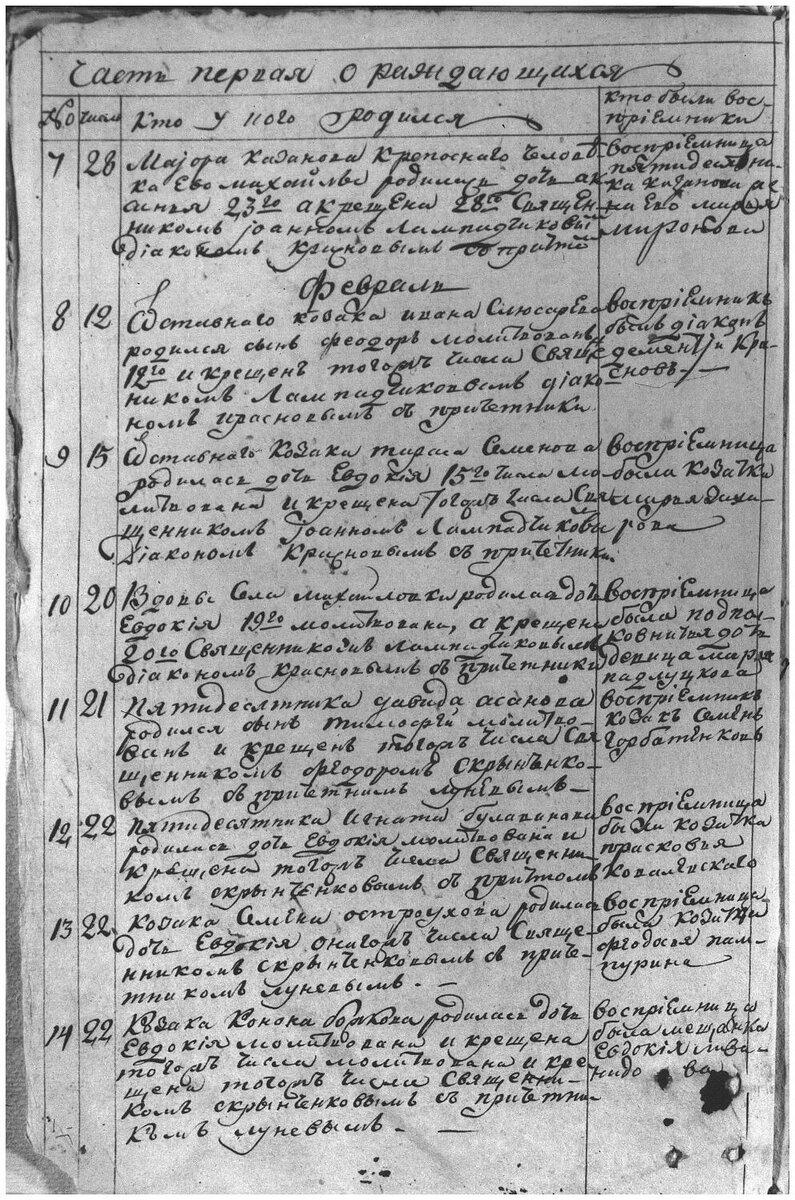 Часть первая о раждающихся
No Число Кто у кого родился кто были вос-
пріемники
7 28 Маіора казанова крепоснаго челове-
ка Ево михайлы родилась дочь ак-
синия 23го а крещена 28го Священ
никомъ Іоанномъ Лампадчиковы
діакономъ красновымъ съ причетъ
воспріемница
пятидесятни-
ка казанова
Ево марья
миронова
Февраль
8 12 Отставнаго козака ивана Слюсарева
родился сынъ феодоръ молитвованъ
12го и крещенъ тогожъ числа Свящ
никомъ Лампадчиковымъ діако
номъ красновымъ съ причетники
воспріемникъ
былъ діаконъ
дементій Кра-
сновъ
9 15 Отставнаго козака тараса Семенова
родилась дочь Евдокія 15го числа мо
литвована и крещена тогожъ числа Свя
щенникомъ Іоанномъ Лампадчиковы
діакономъ Красновымъ съ причетники
воспріемница
была козачка
марья заха-
рова
10 20 Вдовы Елы михаиловки родилась дочь
Евдокія 19го молитвована, а крещена
20го Священникомъ Лампадчиковымъ
діакономъ красновымъ съ причетники
воспріемница
была подпол-
ковничья дочь
девица марья
падлуцкова
11 21 Пятидесятника давида асанова
родился сынъ тимофей молитво-
ванъ и крещенъ тогожъ числа Свя
щенникомъ феодоромъ скрынченко-
вымъ съ причетникомъ луневымъ
воспріемникъ
козакъ семенъ
горбатенковъ
12 22 пятидесятника игната булаванова
родилась дочь Евдокія молитвована и
крещена тогожъ числа Священни
комъ скрынченковымъ съ причтомъ
воспріемница
была козачка
прасковья
ковалевскаго
13 22 козака семена остроухова родилась
дочь Евдокія онагожъ числа Свяще
нникомъ скрынченковымъ съ приче-
тникомъ луневымъ.
воспріемница
была козачка
феодосья пам-
пурина
14 22 Козака Конона бойкова родилась дочь
Евдокія молитвована и крещена
тогожъ числа молитвована и кре
щена тогожъ числа Священни-
комъ скрынченковымъ съ причетни-
комъ луневымъ.
воспріемница
была мещанка
Евдокія